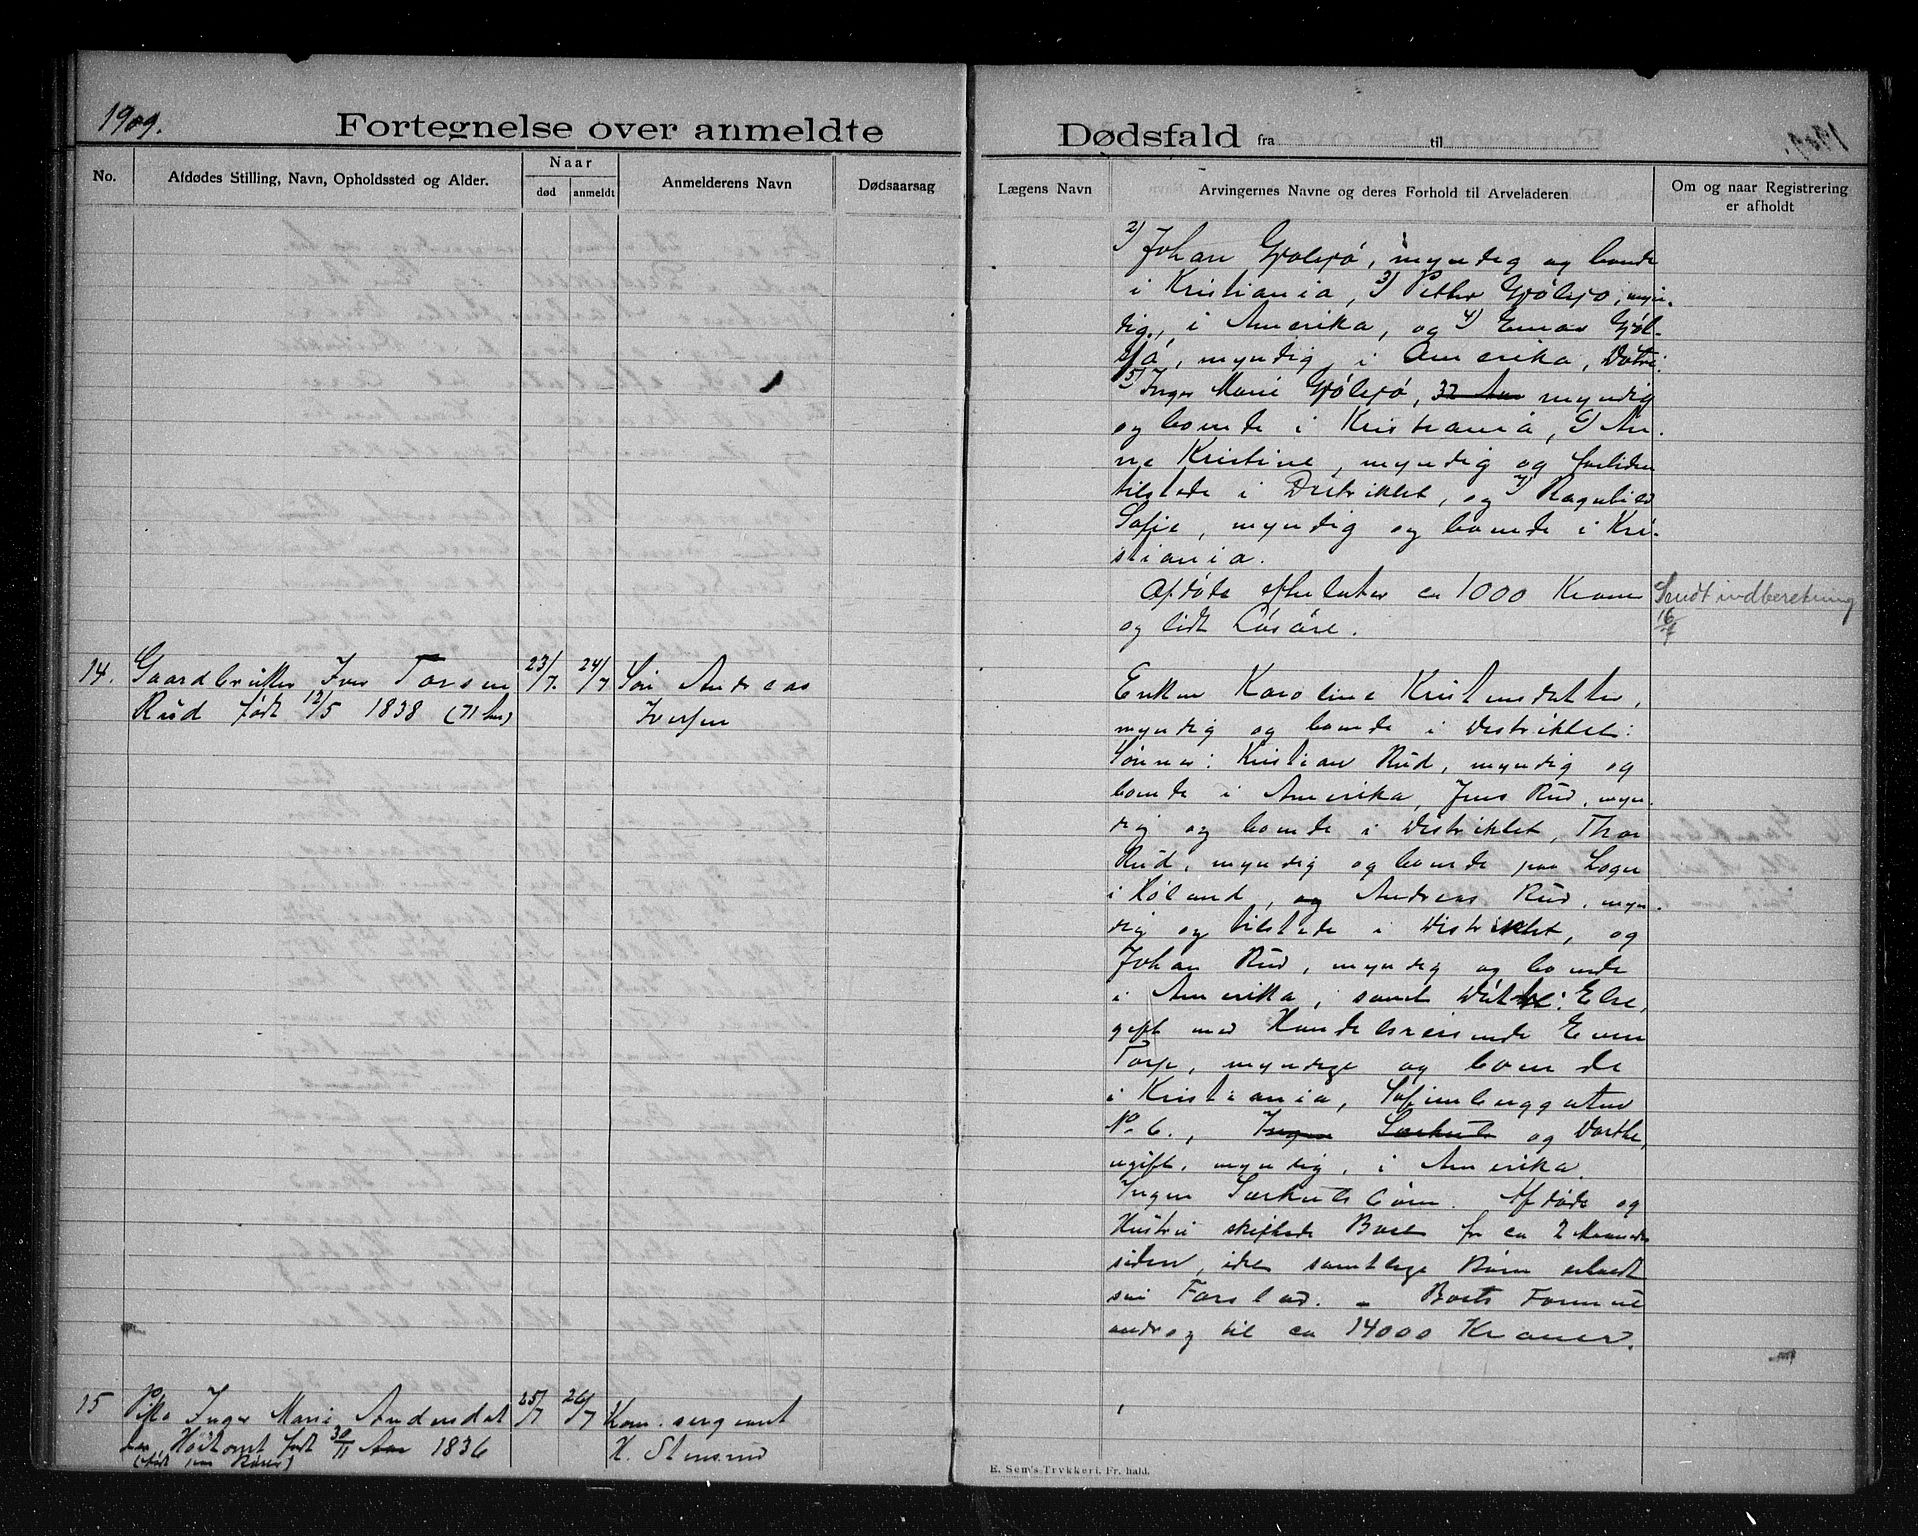 1909.
Fortegnelse over anmeldte
No.
Afdødes Stilling, Navn, Opholdssted og Alder.
Naar
død
anmeldt
Anmelderens Navn
Dødsaarsag
14. Gaardbruker Iver Torsen 23/7. 24/7 Søn Andreas
Rud født 12/5 1838 (71 Aar) Iversen
15 Pike Inger Marie Andersdat 25/7 26/7 Kom. sergeant
ter, født 30/11 Aar 1836 H. Stensrud
(født paa
Dødsfald fra til
Lægens Navn
Arvingernes Navne og deres Forhold til Arveladeren
Om og naar Registrering
er afholdt
2) Johan Gjølsjø, myndig og boende
i Kristiania, 3) Petter Gjølsjø, myn-
dig, i Amerika, og 4) Einar Gjøl-
sjø, myndig, i Amerika, Døtre:
5) Inger Marie Gjølsjø, 32 Aar myndig
og boende i Kristiania, 6) An-
ne Kristine, myndig og forliden
tilstede i Distriktet, og 7) Ragnhild
Sofie, myndig og boende i Kri-
stiania.
Afdøde efterlater ca 1000 Kroner Sendt indberetning
og lidt Løsøre. 16/7
Enken Karoline Kristensdatter,
myndig og boende i Distriktet:
Sønner: Kristian Rud, myndig og
boende i Amerika, Jens Rud, myn-
dig og boende i Distriktet, Thor
Rud, myndig og boende paa
i Høland, og Andreas Rud, myn-
dig og tilstede i Distriktet, og
Johan Rud, myndig og boende
i Amerika, samt Døtre: Else,
gift med Handelsreisende Even
Torp, myndige og boende
i Kristiania, Sofienberggaten
No 6., Ingen Særkuls og Dorthe,
ugift, myndig, i Amerika.
Ingen Særkulsbørn. Afdøde og
Hustru skiftede Boet for ca 2 Maaneder
siden, idet samtlige Børn erholdt
sin Farslod. - Boets Formue
androg til ca 14000 Kroner.
E. Sem's Trykkeri, Fr.hald.